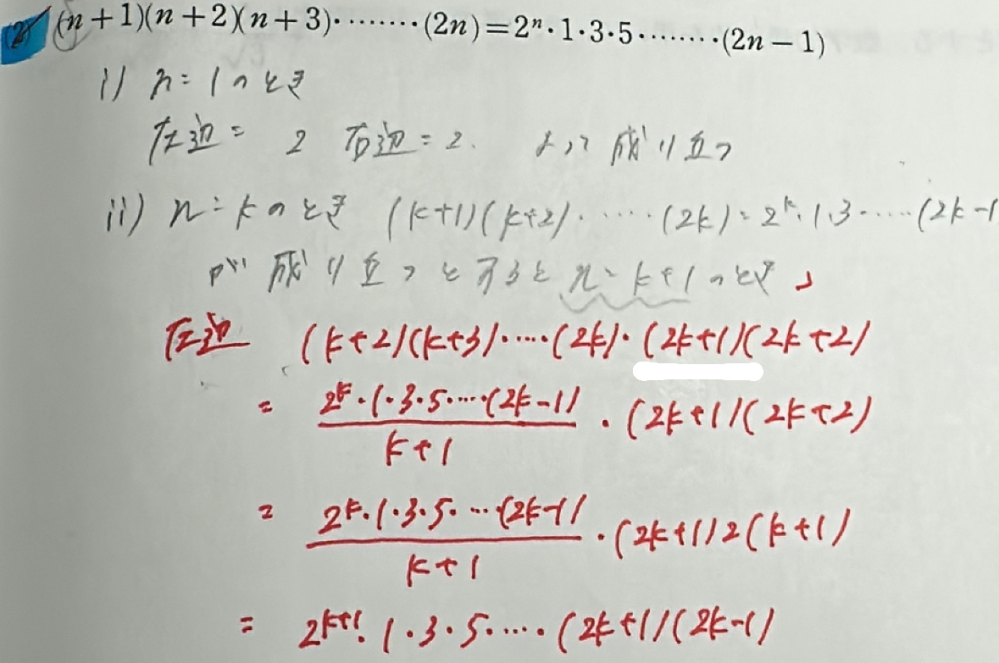 (2) (n+1)(n+2)(n+3)⋯⋯⋯(2n)=2ⁿ·1·3·5⋯⋯⋯(2n−1)
i) n=1のとき
左辺= 2 右辺=2. よって成り立つ
ii) n=kのとき (k+1)(k+2)⋯⋯(2k)=2ᵏ·1·3⋯⋯(2k-1
が成り立つとすると n=k+1のとき、
左辺 (k+2)(k+3)⋯⋯(2k)·(2k+1)(2k+2)
= 2ᵏ·1·3·5⋯⋯(2k-1)/k+1 ·(2k+1)(2k+2)
= 2ᵏ·1·3·5⋯⋯(2k-1)/k+1 ·(2k+1)2(k+1)
= 2ᵏ⁺¹·1·3·5⋯⋯(2k+1)(2k-1)